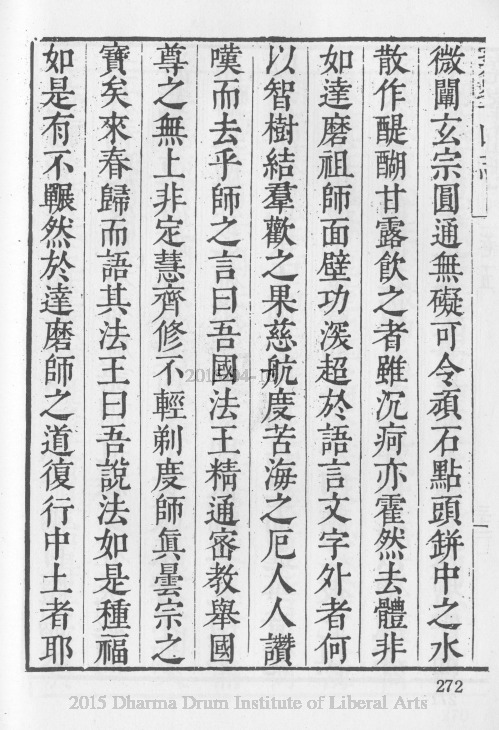 微闡玄宗圓通無礙可令頑石點頭缾中之水
散作醍醐甘露飲之者雖沉疴亦霍然去體非
如達磨祖師面壁功深超於語言文字外者何
以智樹結羣歡之果慈航度苦海之厄人人讚
嘆而去乎師之言曰吾國法王精通密教舉國
尊之無上非定慧齊修不輕剃度師眞曇宗之
寶矣來春歸而語其法王曰吾說法如是種福
如是有不囅然於達磨師之道復行中土者耶
272
2015 Dharma Drum Institute of Liberal Arts